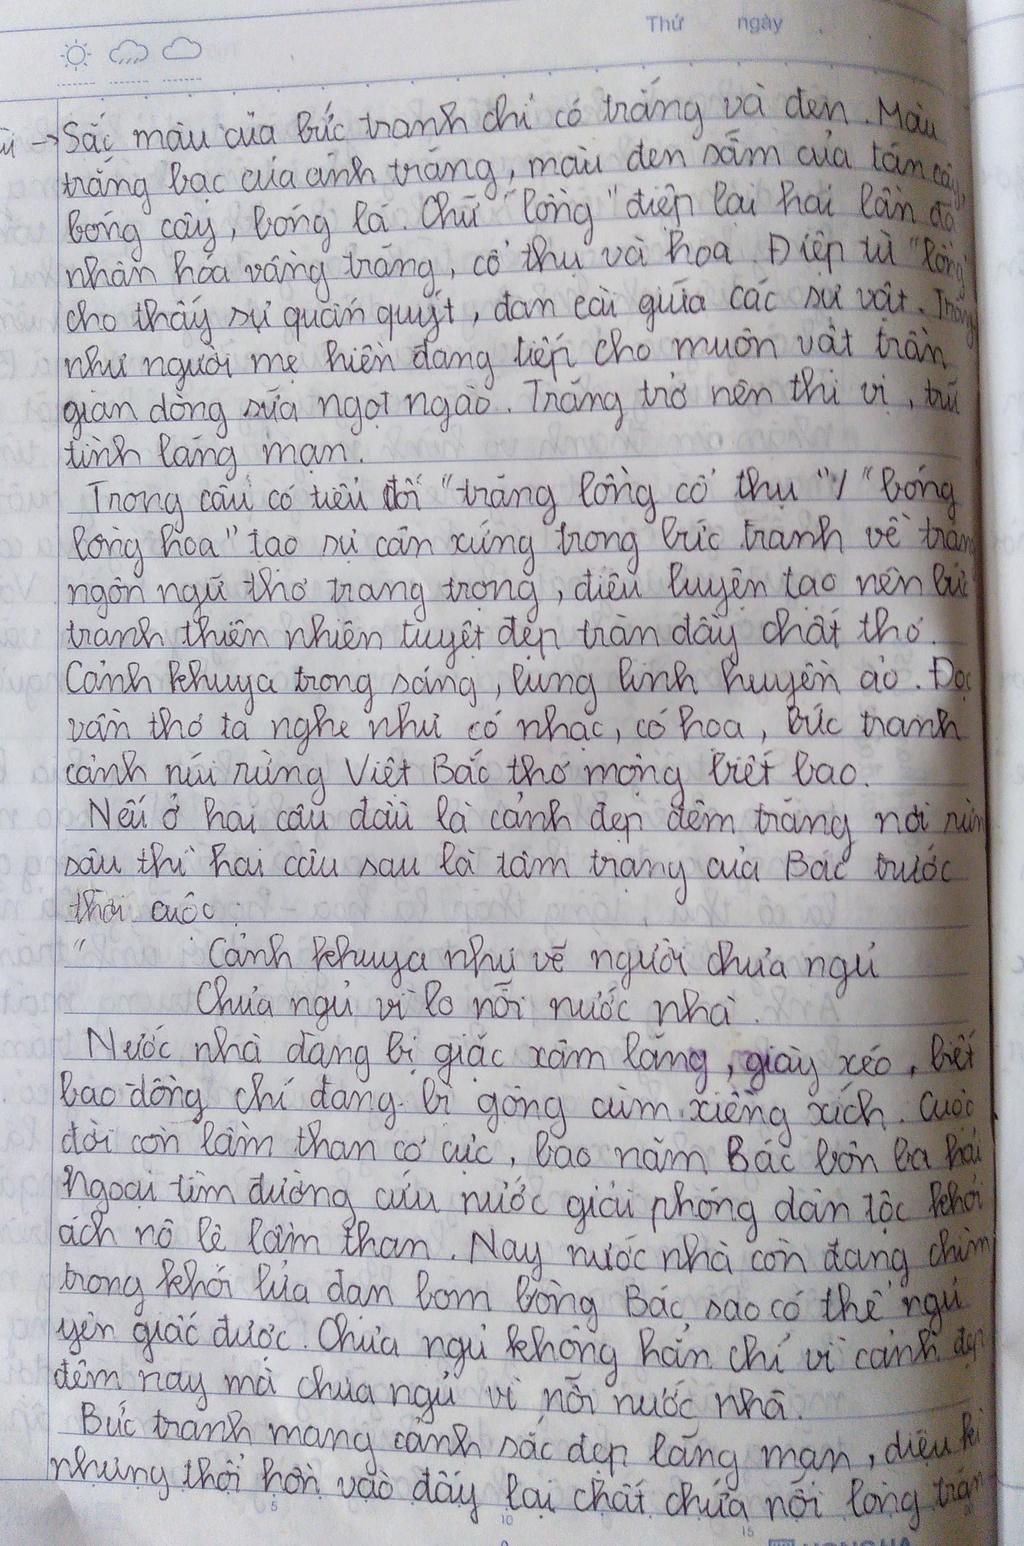 Thứ ngày
→ Sắc màu của bức tranh chỉ có trắng và đen. Màu
trắng bạc của ánh trăng, màu đen sẫm của tán cây,
bóng cây, bóng lá. Chữ "lồng" điệp lại hai lần đã
nhân hóa vầng trăng, cổ thụ và hoa. Điệp từ "lồng"
cho thấy sự quấn quýt, đan cài giữa các sự vật. Trăng
như người mẹ hiền đang tiếp cho muôn vật trần
gian dòng sữa ngọt ngào. Trăng trở nên thi vị, trữ
tình lãng mạn.
Trong câu có tiểu đối "trăng lồng cổ thụ"/ "bóng
lồng hoa" tạo sự cân xứng trong bức tranh về trăng
ngôn ngữ thơ trang trọng, điêu luyện tạo nên bức
tranh thiên nhiên tuyệt đẹp tràn đầy chất thơ.
Cảnh khuya trong sáng, lung linh huyền ảo. Đọc
vần thơ ta nghe như có nhạc, có họa, bức tranh
cảnh núi rừng Việt Bắc thơ mộng biết bao.
Nếu ở hai câu đầu là cảnh đẹp đêm trăng nơi rừng
sâu thì hai câu sau là tâm trạng của Bác trước
thời cuộc:
" Cảnh khuya như vẽ người chưa ngủ
Chưa ngủ vì lo nỗi nước nhà.
Nước nhà đang bị giặc xâm lăng, giày xéo, biết
bao đồng chí đang bị gông cùm xiềng xích. Cuộc
đời còn lầm than cơ cực, bao năm Bác bôn ba hải
ngoại tìm đường cứu nước giải phóng dân tộc khỏi
ách nô lệ lầm than. Nay nước nhà còn đang chìm
trong khói lửa đạn bom lòng Bác sao có thể ngủ
yên giấc được. Chưa ngủ không hẳn chỉ vì cảnh đẹp
đêm nay mà chưa ngủ vì nỗi nước nhà.
Bức tranh mang cảnh sắc đẹp lãng mạn, diệu kì
nhưng thổi hồn vào đấy lại chất chứa nỗi lòng